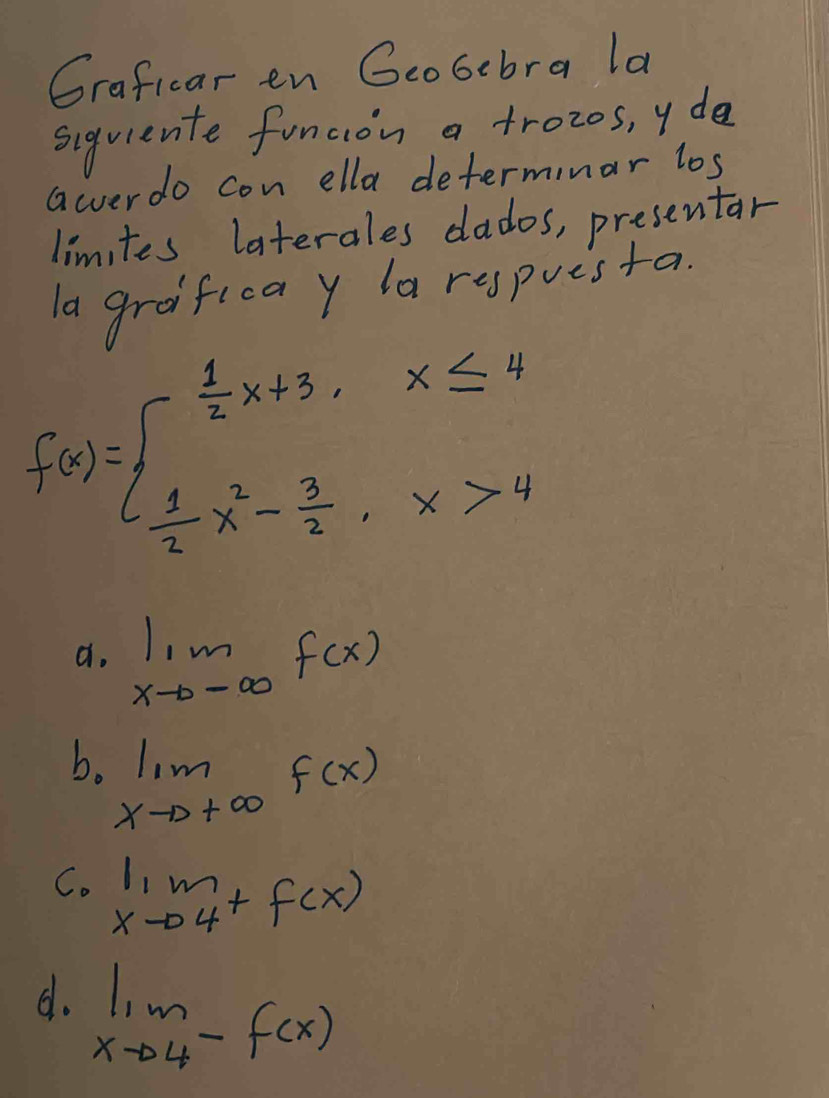 Graficar en GeoGebra la
siguiente función a trozos, y de
acuerdo con ella determinar los
límites laterales dados, presentar
la gráfica y la respuesta.
f(x) = { 1/2 x + 3, x ≤ 4
1/2 x² - 3/2, x > 4
a. lim x→-∞ f(x)
b. lim x→+∞ f(x)
c. lim x→4⁺ f(x)
d. lim x→4⁻ f(x)